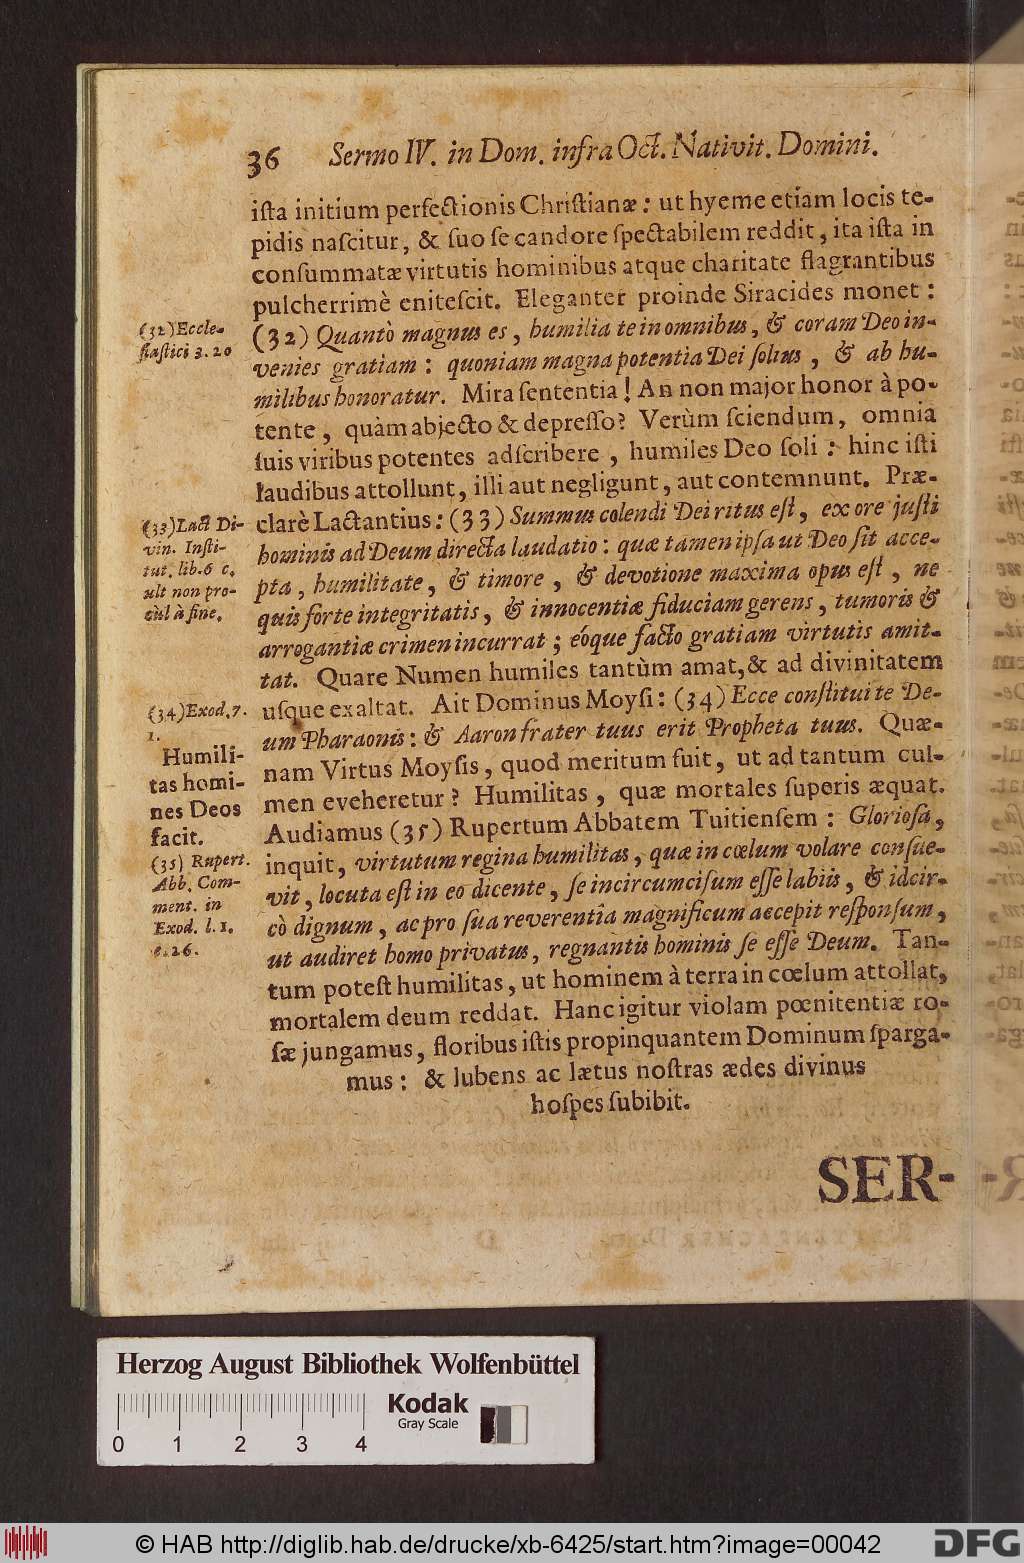 36 Sermo IV. in Dom. infra Oct. Nativit. Domini.
ista initium perfectionis Christianæ: ut hyeme etiam locis te-
pidis nascitur, & suo se candore spectabilem reddit, ita ista in
consummatæ virtutis hominibus atque charitate flagrantibus
pulcherrimè enitescit. Eleganter proinde Siracides monet:
(32) Quantò magnus es, humilia te in omnibus, & coram Deo in-
venies gratiam: quoniam magna potentia Dei solius, & ab hu-
milibus honoratur. Mira sententia! An non major honor à po-
tente, quàm abjecto & depresso? Verùm sciendum, omnia
suis viribus potentes adscribere, humiles Deo soli: hinc isti
laudibus attollunt, illi aut negligunt, aut contemnunt. Præ-
clarè Lactantius: (33) Summus colendi Dei ritus est, ex ore justi
hominis ad Deum directa laudatio: quæ tamen ipsa ut Deo sit acce-
pta, humilitate, & timore, & devotione maxima opus est, ne
quis forte integritatis, & innocentiæ fiduciam gerens, tumoris &
arrogantiæ crimen incurrat; eóque facto gratiam virtutis amit-
tat. Quare Numen humiles tantùm amat, & ad divinitatem
usque exaltat. Ait Dominus Moysi: (34) Ecce constitui te De-
um Pharaonis: & Aaron frater tuus erit Propheta tuus. Quæ-
nam Virtus Moysis, quod meritum fuit, ut ad tantum cul-
men eveheretur? Humilitas, quæ mortales superis æquat.
Audiamus (35) Rupertum Abbatem Tuitiensem: Gloriosa,
inquit, virtutum regina humilitas, quæ in cœlum volare consue-
vit, locuta est in eo dicente, se incircumcisum esse labiis, & idcir-
cò dignum, ac pro sua reverentia magnificum accepit responsum,
ut audiret homo privatus, regnantis hominis se esse Deum. Tan-
tum potest humilitas, ut hominem à terra in cœlum attollat,
mortalem deum reddat. Hanc igitur violam pœnitentiæ ro-
sæ jungamus, floribus istis propinquantem Dominum sparga-
mus: & lubens ac lætus nostras ædes divinus
hospes subibit.
SER-
(32) Eccle-
siastici 3. 20
(33) Lact Di-
vin. Insti-
tut. lib. 6 c.
ult non pro-
cùl à fine.
(34) Exod. 7.
1.
Humili-
tas homi-
nes Deos
facit.
(35) Rupert.
Abb. Com-
ment. in
Exod. l. 1.
c. 26.
Herzog August Bibliothek Wolfenbüttel
Kodak
Gray Scale
0 1 2 3 4
© HAB http://diglib.hab.de/drucke/xb-6425/start.htm?image=00042
DFG